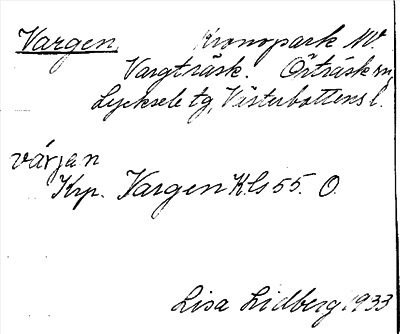 Vargen, Kronopark NV.
Vargträsk. Örträsk sn,
Lycksele tg, Västerbottens l.
várjan
Krp. Vargen K.Ls 55. O.
Lisa Lidberg 1933